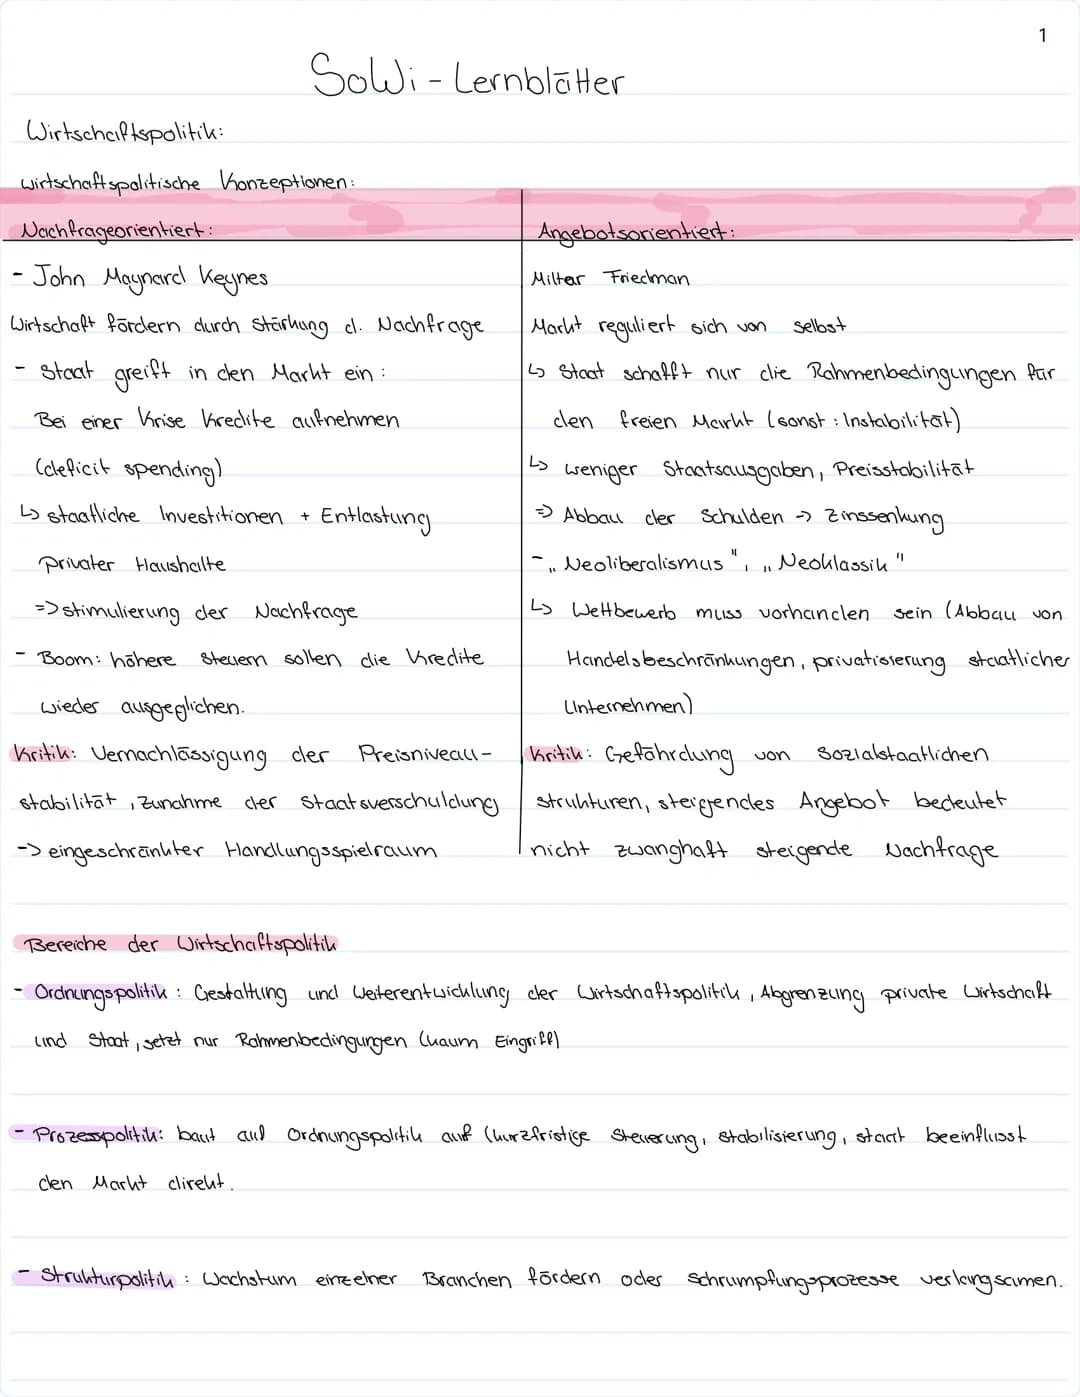 1
SoWi - Lernblätter
Wirtschaftspolitik:
wirtschaftspolitische Konzeptionen:
Nachfrageorientiert:
- John Maynard Keynes
Wirtschaft fördern durch Stärkung d. Nachfrage
- Staat greift in den Markt ein:
Bei einer Krise Kredite aufnehmen
(deficit spending)
↳ staatliche Investitionen + Entlastung
privater Haushalte
=> stimulierung der Nachfrage
- Boom: höhere Steuern sollen die Kredite
wieder ausgeglichen.
Kritik: Vernachlässigung der Preisniveau-
stabilität, Zunahme der Staatsverschuldung
-> eingeschränkter Handlungsspielraum
Angebotsorientiert:
Miltar Friedman
Markt reguliert sich von selbst
↳ Staat schafft nur die Rahmenbedingungen für
den freien Markt (sonst: Instabilität)
↳ weniger Staatsausgaben, Preisstabilität
=> Abbau der Schulden -> Zinssenkung
- „Neoliberalismus", „Neoklassik"
↳ Wettbewerb muss vorhanden sein (Abbau von
Handelsbeschränkungen, privatisierung staatlicher
Unternehmen)
Kritik: Gefährdung von sozialstaatlichen
strukturen, steigendes Angebot bedeutet
nicht zwanghaft steigende Nachfrage
Bereiche der Wirtschaftspolitik
- Ordnungspolitik: Gestaltung und Weiterentwicklung der Wirtschaftspolitik, Abgrenzung private Wirtschaft
und Staat, setzt nur Rahmenbedingungen (kaum Eingriff)
- Prozesspolitik: baut auf Ordnungspolitik auf (kurzfristige Steuerung, stabilisierung, staat beeinflusst
den Markt direkt.
- Strukturpolitik: Wachstum einzelner Branchen fördern oder schrumpfungsprozesse verlangsamen.